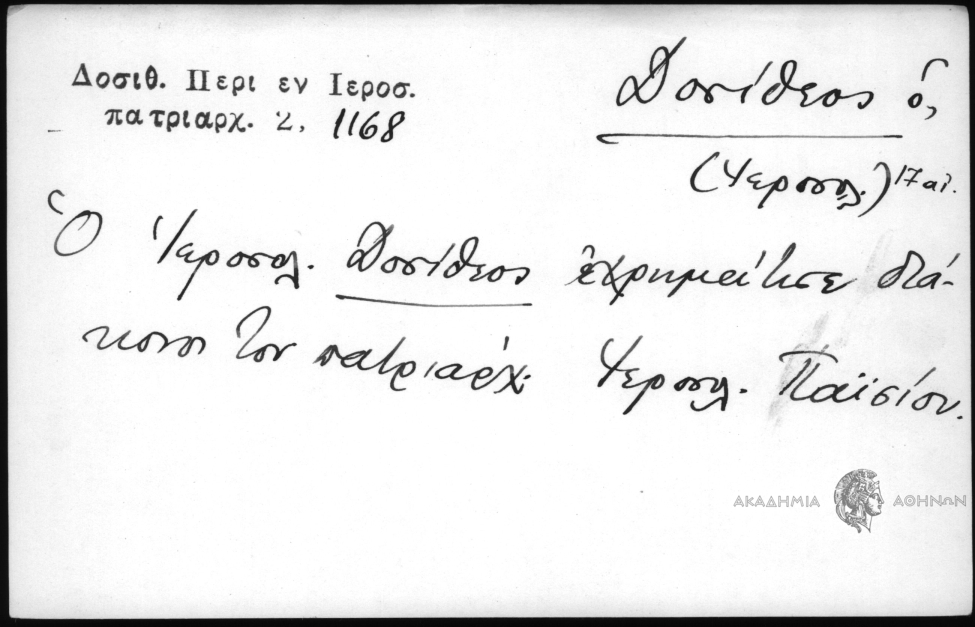 Δοσιθ. Περι εν Ιεροσ.
πατριαρχ. 2, 1168
Δοσίθεος ὁ,
(Ἱεροσολ.) 17 αἰ.
Ὁ Ἱεροσολ. Δοσίθεος ἐχρημάτισε διά-
κονος τοῦ πατριάρχ. Ἱεροσολ. Παϊσίου.
ΑΚΑΔΗΜΙΑ ΑΘΗΝΩΝ